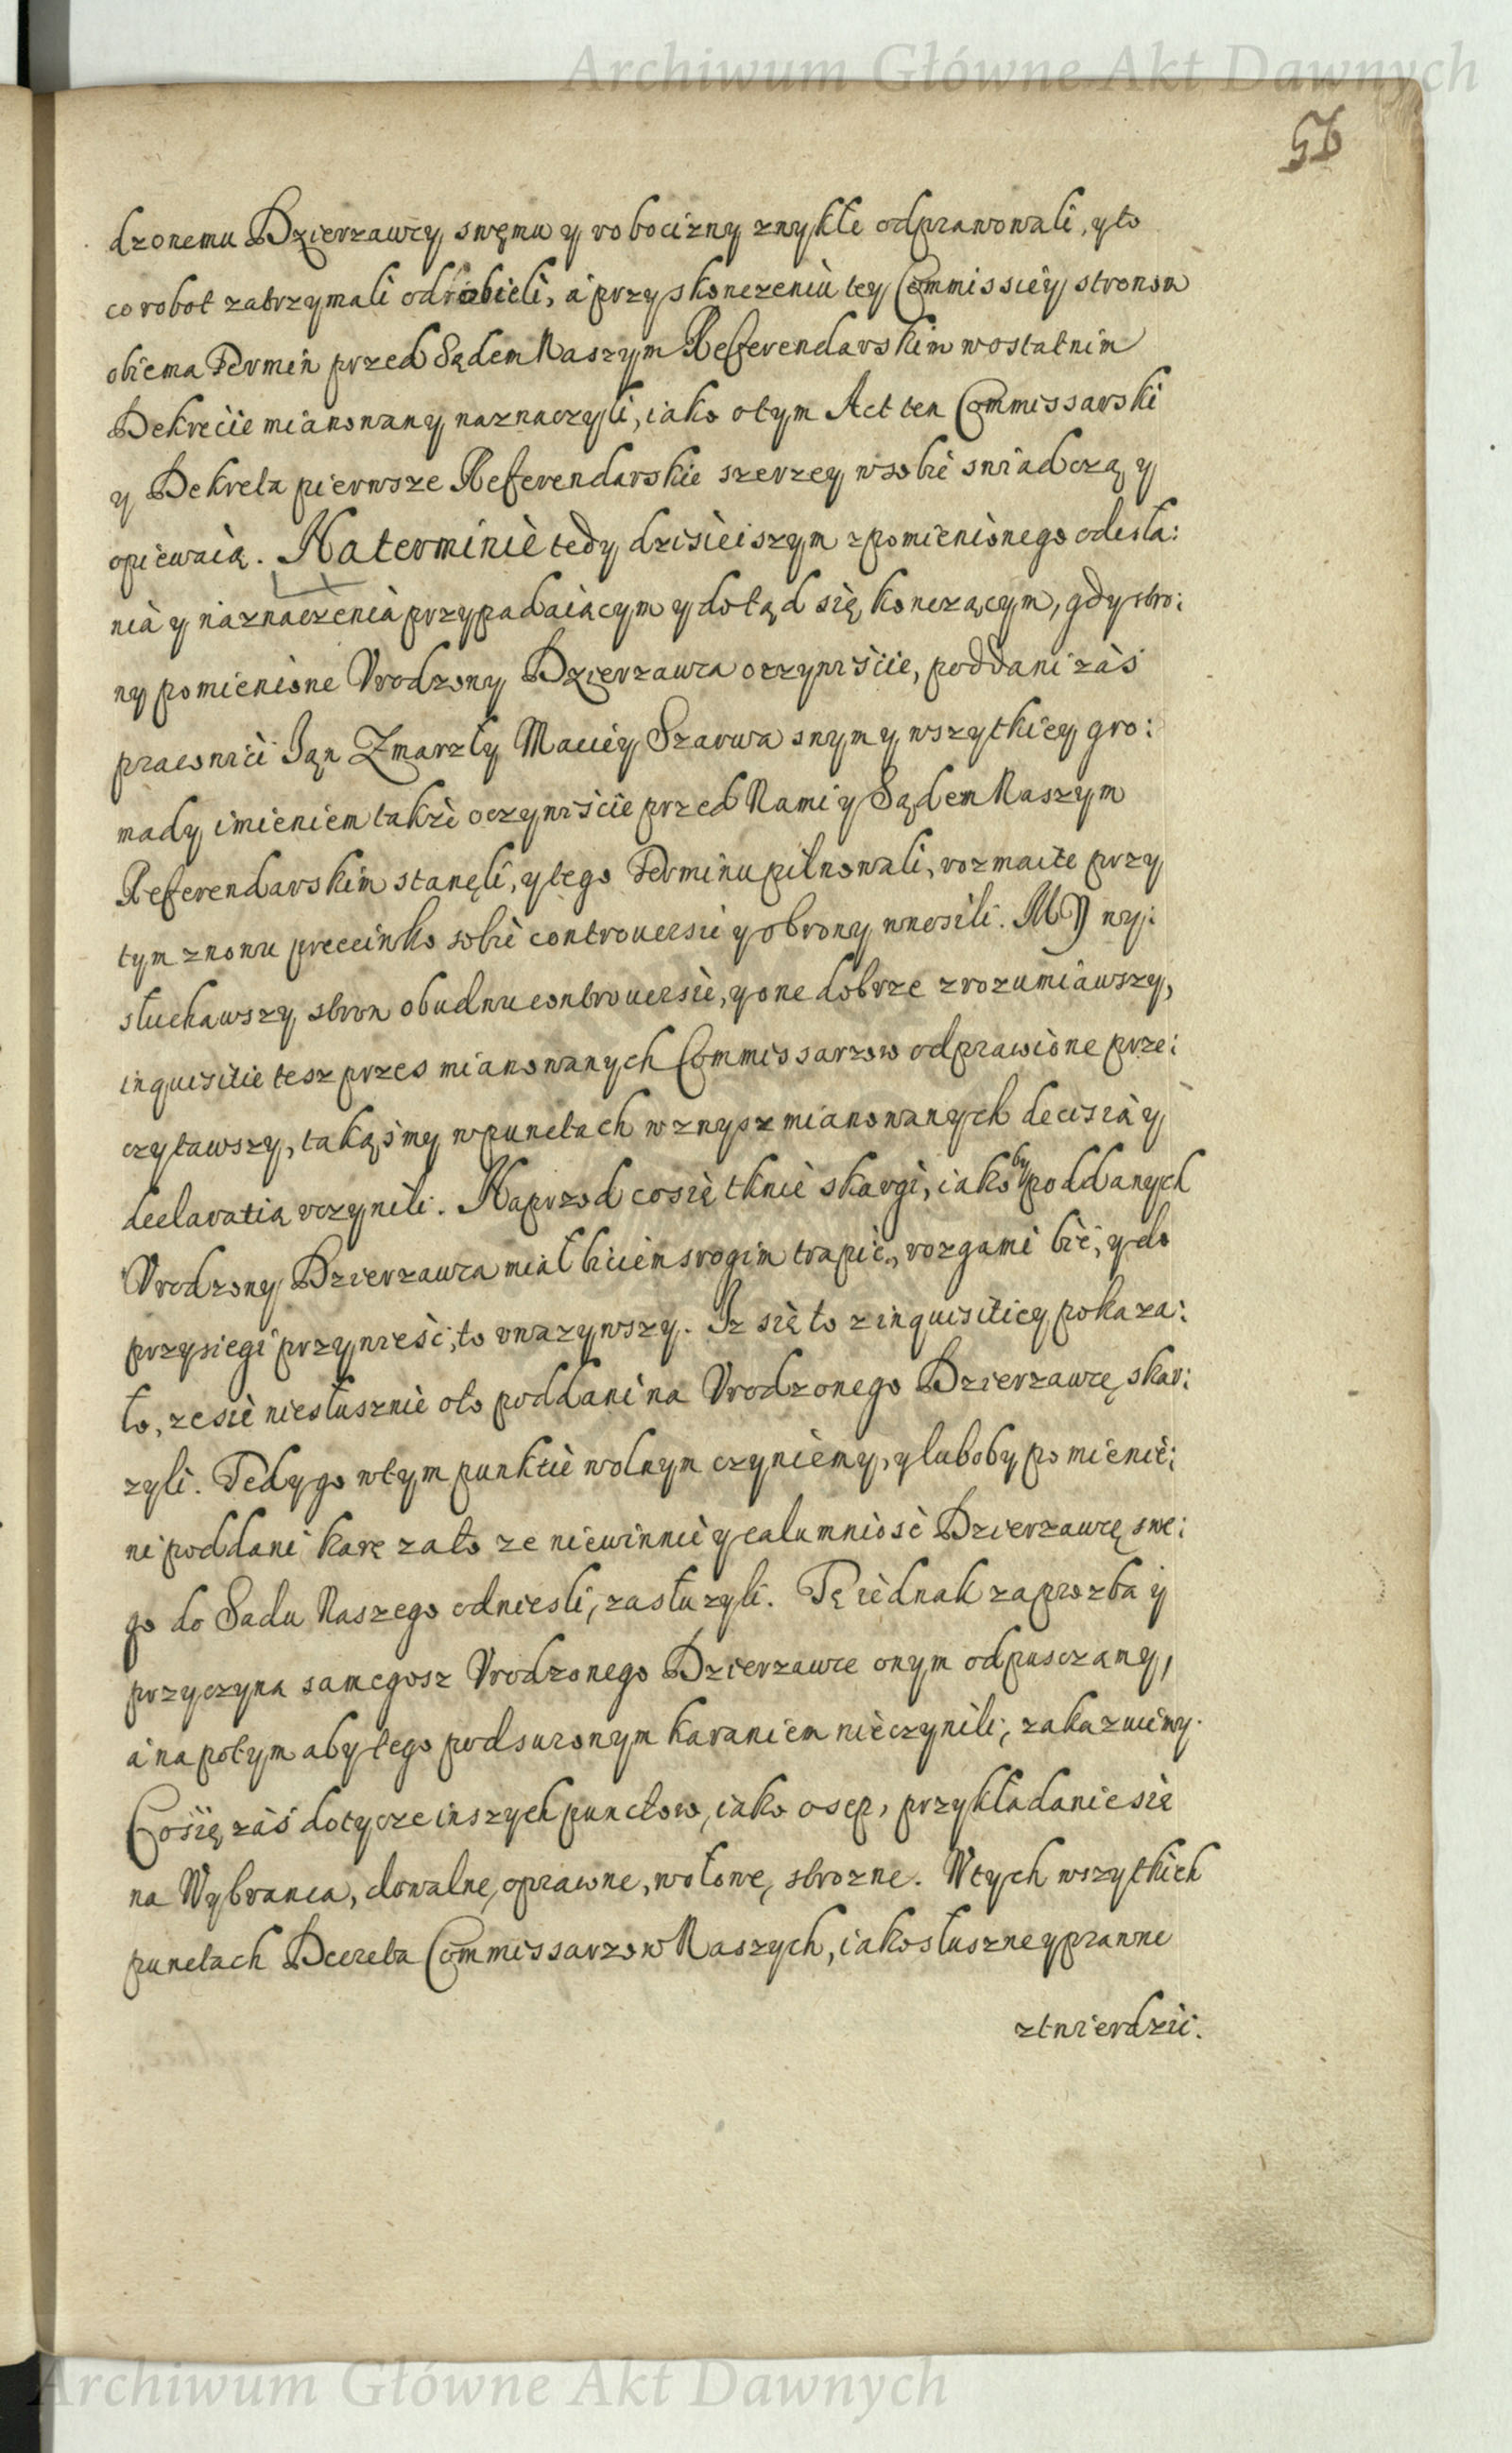 Archiwum Główne Akt Dawnych
56
dzonemu Dzierzawcy swęmu y robocizny zwykłe odprawowali, y to
co robot zatrzymali odrobieli, a przy skonczeniu tey Commissiey stronom
obiema Termin przed Sądem Naszym Referendarskim w ostatnim
Dekrecie mianowany naznaczyli, iako o tym Act ten Commissarski
y Dekreta pierwsze Referendarskie szerzey w sobie swiadczą y
opiewaią. Na terminie tedy dzisieiszym z pomienionego odesła:
nia y naznaczenia przypadaiącym y dotąd się konczącym, gdy stro:
ny pomienione Vrodzony Dzierzawca oczywiście, poddani zaś
pracowici Jan Zmarzły Maciey Szarwa swym y wszytkiey gro:
mady imieniem także oczywiście przed Nami y Sądem Naszym
Referendarskim stanęli, y tego Terminu pilnowali, rozmaite przy
tym znowu przeciwko sobie controuersie y obrony wnosili. MY wy:
słuchawszy stron obudwu controuersie, y one dobrze zrozumiawszy,
inquisitie tesz przes mianowanych Commissarzow odprawione prze:
czytawszy, takąśmy w punctach wznysz mianowanych decisią y
declaratią vczynili. Naprzod co się tknie skargi, iakoby poddanych
Vrodzony Dzierzawca miał biciem srogim trapić, rozgami bić, y do
przysiegi przywieść, to vwazywszy. Iz się to z inquisitiey pokaza:
ło, ze sie niesłusznie oto poddani na Vrodzonego Dzierzawcę skar:
zyli. Tedy go w tym punkcie wolnym czyniemy, y luboby pomienie:
ni poddani karę za to ze niewinnie y calumniose Dzierzawcę swe:
go do Sadu Naszego odniesli, zasłuzyli. Tę iednak za prozba y
przyczyna samegosz Vrodzonego Dzierzawce onym odpusczamy,
a na potym aby tego pod surowym karaniem nie czynili, zakazuiemy.
Co się zaś dotycze inszych punctow, iako osep, przykładanie się
na Wybranca, dowalne, oprawne, wołowe, strozne. W tych wszytkich
punctach Decreta Commissarzow Naszych, iako słuszne y prawne
ztwierdzić.
Archiwum Główne Akt Dawnych